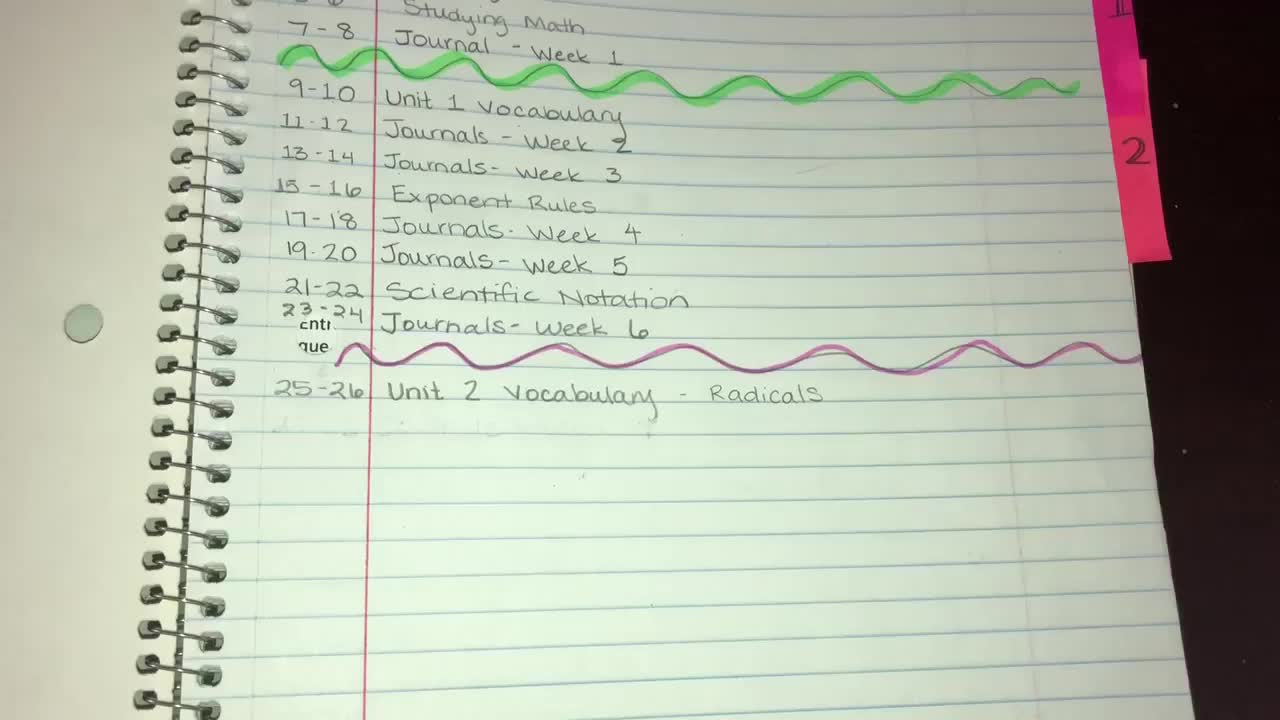 Studying Math
7-8 Journal - Week 1
9-10 Unit 1 Vocabulary
11-12 Journals - Week 2
13-14 Journals- Week 3
15-16 Exponent Rules
17-18 Journals- Week 4
19-20 Journals- Week 5
21-22 Scientific Notation
23-24 Journals- Week 6
cnti
que
25-26 Unit 2 Vocabulary - Radicals
1
2